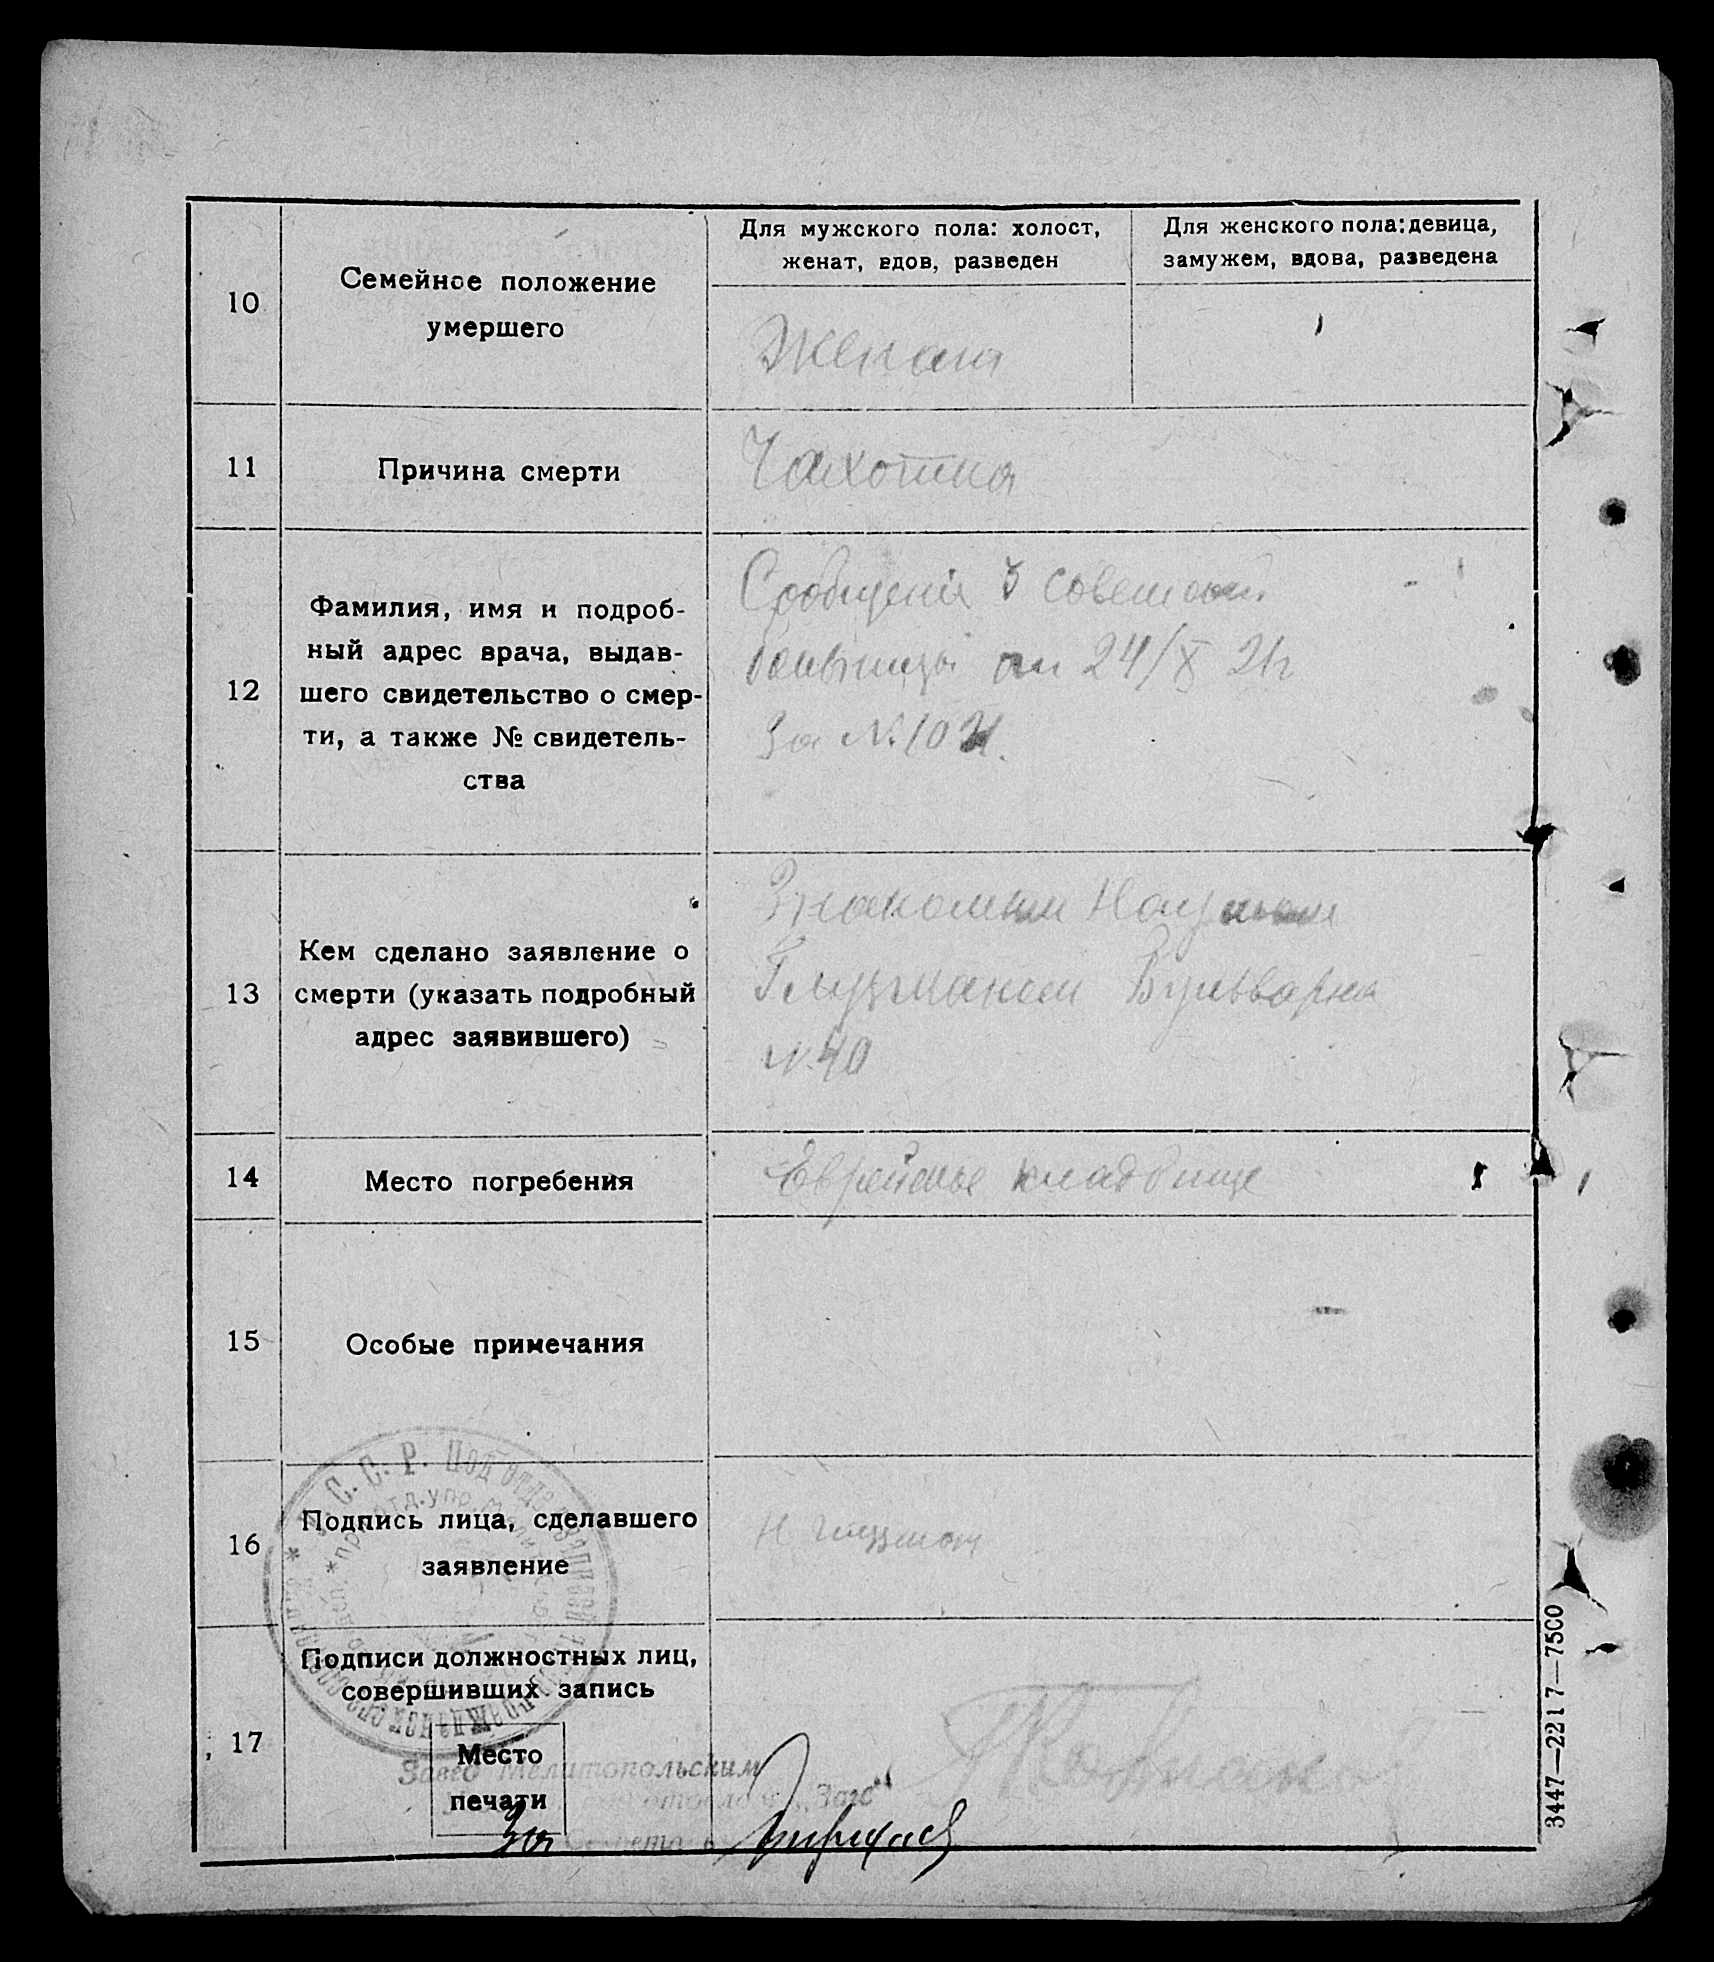 Для мужского пола: холост,
женат, вдов, разведен
Для женского пола: девица,
замужем, вдова, разведена
10
Семейное положение
умершего
Женат
11
Причина смерти
Чахотка
12
Фамилия, имя и подроб-
ный адрес врача, выдав-
шего свидетельство о смер-
ти, а также № свидетель-
ства
Сообщение 3 советской
больницы от 24/X 21г
За №
13
Кем сделано заявление о
смерти (указать подробный
адрес заявившего)
Знакомым
Глузманом Бульварная
№ 40
14
Место погребения
Еврейское кладбище
15
Особые примечания
16
Подпись лица, сделавшего
заявление
Н Глузман
17
Подписи должностных лиц,
совершивших запись
Место
печати
С. С. Р. Подотдел записей
отд. упр.
Завед Мелитопольским
"Загс"
За
3447—2217—7500